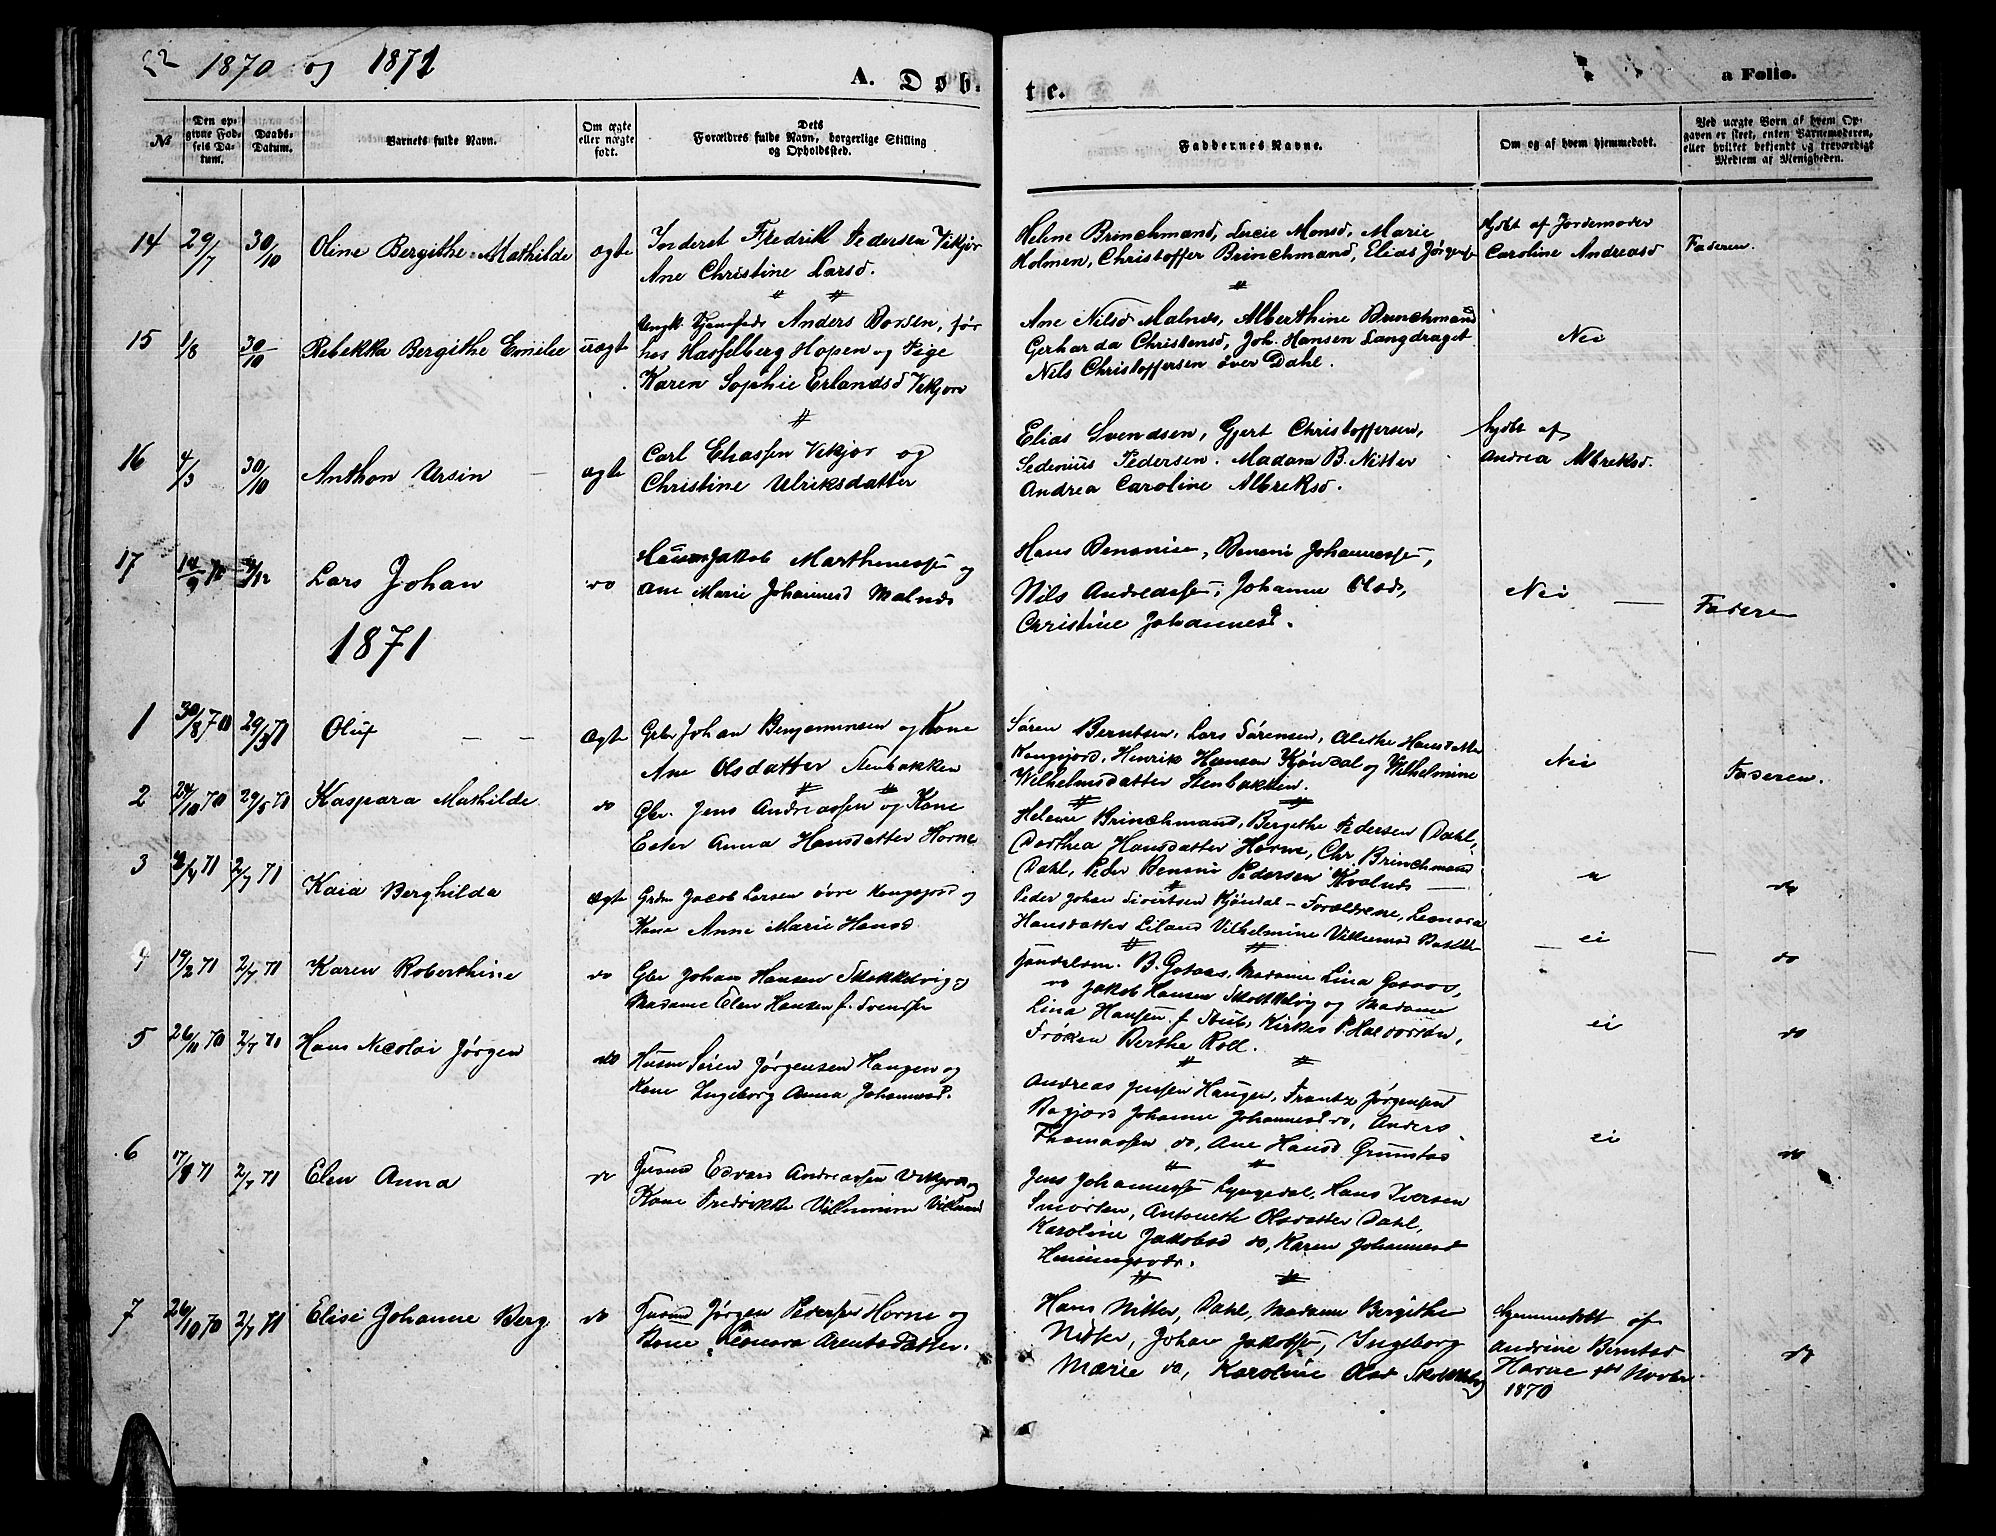 22 1870 og 1871
A. Døb-
te.
a Folio.
No
Den op-
givne Fød-
sels Da-
tum.
Daabs-
Datum.
Barnets fulde Navn.
Om ægte
eller uægte
født.
Dets
Forældres fulde Navn, borgerlige Stilling
og Opholdssted.
Faddernes Navne.
Om og af hvem hjemmedøbt.
Ved uægte Børn af hvem Op-
gaven er skeet, enten Barnemoderen,
eller hvilket bekjendt og troværdigt
Medlem af Menigheden.
14 29/7 30/10 Oline Bergithe Mathilde ægte Inderst Fredrik Pedersen Vikjor
Ane Christine Larsd.
Helene Brinchmand, Lucie Monsd, Marie
Holmen, Christoffer Brinchmand, Elias Jørgense
hjdbt af Jordemoder
Caroline Andreasd
Faderen.
15 1/8 30/10 Rebekka Bergithe Emilie uægt Ungk. Anders Borsen, før
hos Hasselberg Hopen og Pige
Karen Sophie Erlandsd Vikjor
Ane Nilsd Malnes, Alberthine Brinchmand
Gerharda Christensd, Joh. Hansen Langdraget
Nils Christoffersen över Dahl.
Nei
16 4/3 30/10 Anthon Ursin ægte Carl Eliassen Vikjor og
Christine Ulriksdatter
Elias Svendsen, Gjert Christoffersen,
Sedenius Pedersen. Madam B. Nitter
Andrea Caroline Albreksd.
hjdbt af
Andrea Albreksd.
17 14/9 70 /12 Lars Johan do Husm Jakob Marthenesse og
Ane Marie Johannesd Malnes
Hans Benonise, Benoni Johannesse,
Nils Andreasse, Johanne Olsd,
Christine Johannesd.
Nei
Fadere
1871
1 30/8 70 29/5 71 Oluf ægte Gbr Johan Benjaminsen og Kone
Ane Olsdatter Stenbakken
Søren Berntsen, Lars Sørensen, Alethe Hansdatter
Kongsjord, Henrik Hansen Kjøndal og Vilhelmine
Wilhelmsdatter Stenbakken.
Nei
Faderen.
2 24/10 70 29/5 71 Kaspara Mathilde do Gbr. Jens Andreassen og Kone
Ester Anna Hansdatter Horne
Helene Brinchmand, Bergithe Pedersen Dahl,
Dorthea Hansdatter Horne, Chr. Brinchmand
Dahl, Peder Benoni Pedersen Kvalnes
do
3 /4 71 2/7 71 Kaia Berghilda ægte Grdm Jacob Larsen övre Kongsjord og
Kone Anne Marie Hansd
Peder Johan Sivertsen Kjøndal - Forældrene, Leonora
Hansdatter Liland Vilhelmine Villumsd
ei
do
4 19/2 71 2/7 71 Karen Roberthine do Gbr Johan Hansen Skokkelvig og
Madame Elen Hansen f. Svendsen
B. Gosaas, Madame Lina Gosaas,
do Jakob Hansen Skokkelvig og Madame
Lina Hansen f. Stub, Kirkes P. Halvorsen,
Frøken Berthe Roll.
ei
do
5 26/11 70 2/7 71 Hans Nicolai Jørgen do Husm Søren Jørgensen Haugen og
Kone Ingeborg Anna Johannesd.
Andreas Jensen Haugen, Frantz Jørgensen
Bogjord Johanne Johannesd do, Anders
Thomassen do, Ane Hansd Grimstad
ei
do
6 17/ 71 2/7 71 Elen Anna do Edvard Andreassen Vikjord og
Kone Fredrikke Vilhelmine
Jens Johannesse Lyngedal, Hans Iversen
Smorten, Antonette Olsdatter Dahl,
Karoline Jakobsd do, Karen Johannesd
Henningsvær.
7 26/10 70 2/7 71 Elise Johanne Berg do Jørgen Pedersen Horne og
Kone Leonora Arentsdatter.
Hans Nitter, Dahl, Madam Bergithe
Nitter, Johan Jakobse, Ingeborg
Marie do, Karoline Olsd Skokkelvig
hjemmedøbt af
Andrine Berntsd
Horne Novbr
1870
do